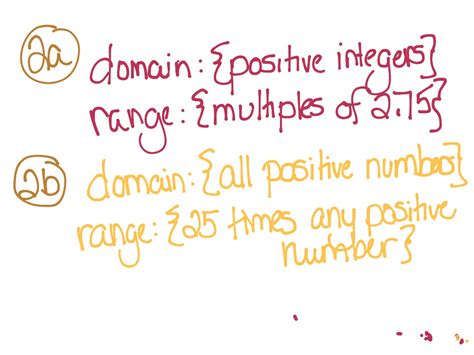 2a domain: {positive integers}
range: {multiples of 2.75}
2b domain: {all positive numbers}
range: {25 times any positive
number}